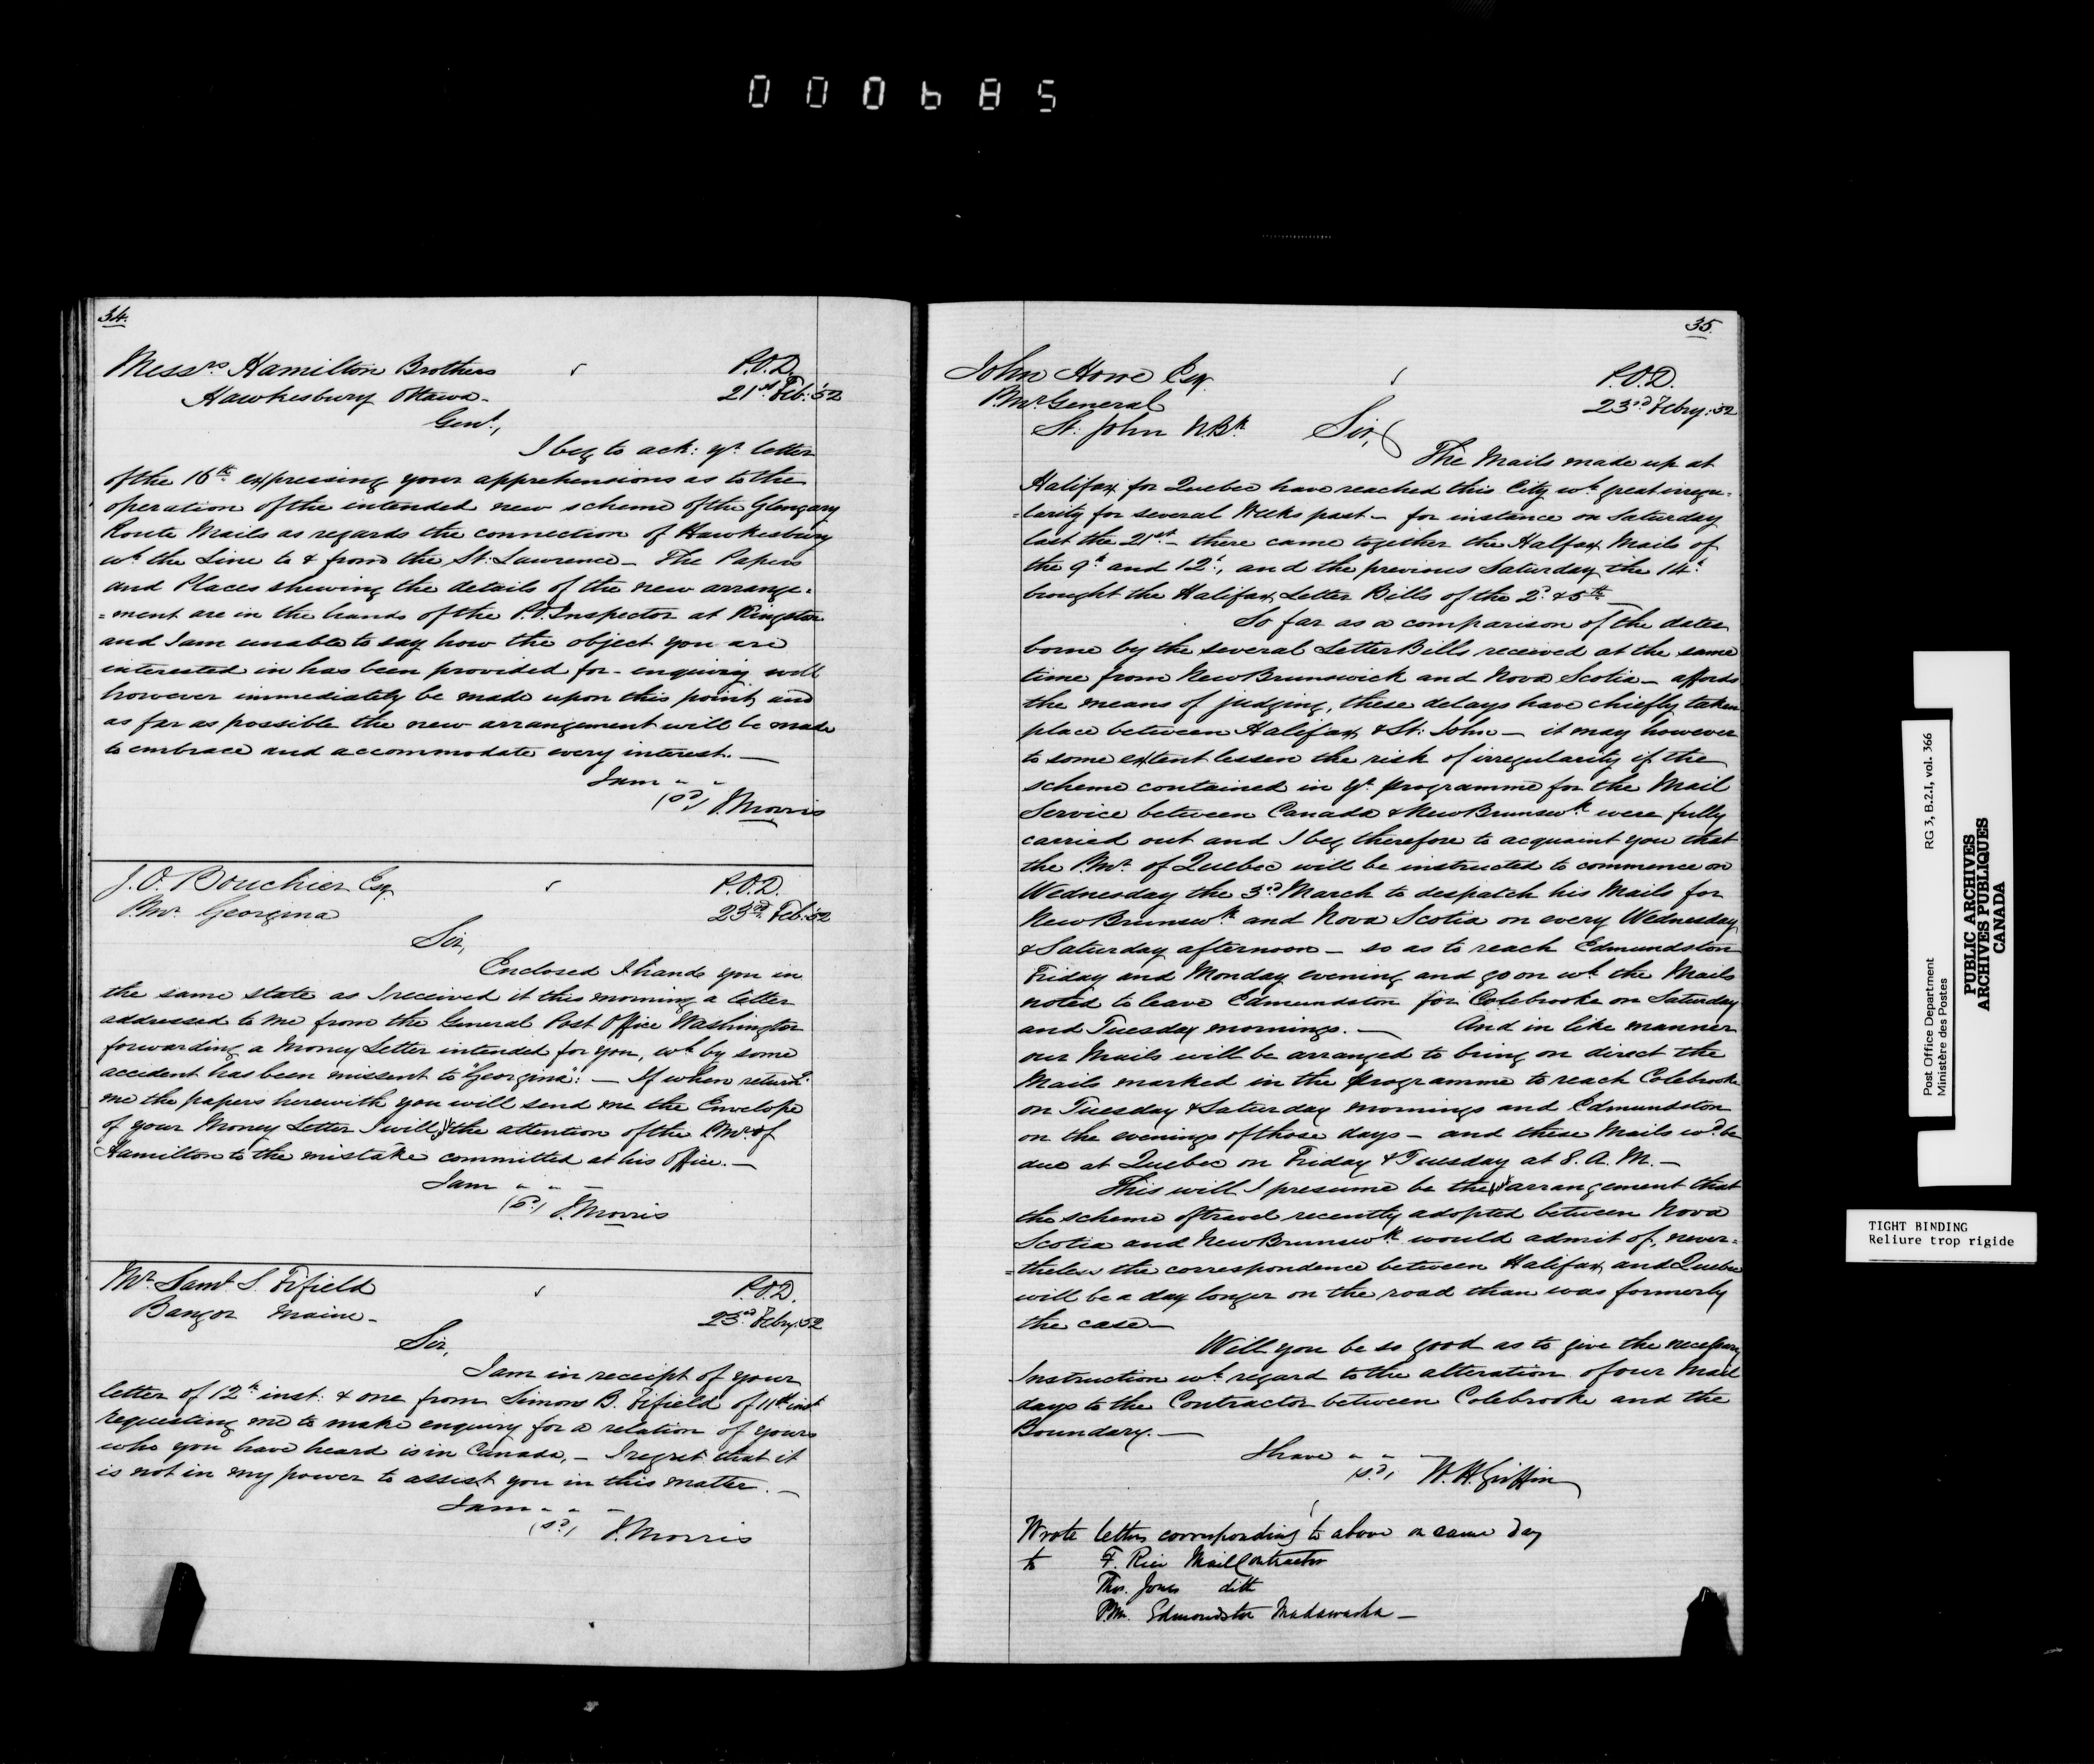 000685
34.
Messrs Hamilton Brothers
Hawkesbury Ottawa-
P.O.D.
21st Feb: 52
Gent.,
I beg to ack: yr letter
of the 16th expressing your apprehensions as to the
operation of the intended new scheme of the Glengary
Route Mails as regards the connection of Hawkesbury
wh the Line to & from the St. Lawrence_ The Papers
and Places shewing the details of the new arrange=
=ment are in the hands of the P.O. Inspector at Kingston
and I am unable to say how the object you are
interested in has been provided for- enquiry will
however immediately be made upon this point and
as far as possible the new arrangement will be made
to embrace and accommodate every interest._
I am " "
(sd) J. Morris
J. O. Bouchier Esq.
P.Mr Georgina
P.O.D.
23rd Feb: 52
Sir,
Enclosed I hand you in
the same state as I received it this morning a letter
addressed to me from the General Post Office Washington
forwarding a Money Letter intended for you, wh by some
accident has been missent to "Georgina": _ If when returng
me the papers herewith you will send me the Envelope
of your Money Letter I will the attention of the P.Mr of
Hamilton to the mistake committed at his office._
I am " " _
(sd) J. Morris
Mr Saml S. Fifield
Bangor Maine-
P.O.D.
23rd Feby: 52
Sir,
I am in receipt of your
letter of 12th inst: & one from Simons B. Fifield of 11th inst
requesting me to make enquiry for a relation of yours
who you have heard is in Canada,_ I regret that it
is not in my power to assist you in this matter._
I am " " _
(sd) J. Morris
35.
John Howe Esq.
P.Mr General
St. John N.Bk.
P.O.D.
23rd Feby: 52
Sir,
The Mails made up at
Halifax for Quebec have reached this City wh great irregu=
=larity for several Weeks past_ for instance on Saturday
last the 21st_ there came together the Halfax Mails of
the 9th and 12th, and the previous Saturday the 14th
brought the Halifax Letter Bills of the 2d & 5th_
So far as a comparison of the dates
borne by the several Letter Bills received at the same
time from New Brunswick and Nova Scotia_ affords
the means of judging, these delays have chiefly taken
place between Halifax & St. John_ it may however
to some extent lessen the risk of irregularity if the
scheme contained in yr programme for the Mail
Service between Canada & New Brunswk were fully
carried out and I beg therefore to acquaint you that
the P.Mr of Quebec will be instructed to commence on
Wednesday the 3d March to despatch his Mails for
New Brunswk and Nova Scotia on every Wednesday
& Saturday afternoon_ so as to reach Edmundston
Friday and Monday evening and go on wh the Mails
noted to leave Edmundston for Colebrooke on Saturday
and Tuesday mornings._ And in like manner
our Mails will be arranged to bring on direct the
Mails marked in the programme to reach Colebrooke
on Tuesday & Saturday mornings and Edmundston
on the evenings of those days_ and these Mails wd be
due at Quebec on Friday & Tuesday at 8. A. M._
This will I presume be the arrangement that
the scheme of travel recently adopted between Nova
Scotia and New Brunswk would admit of, never=
=theless the correspondence between Halifax and Quebec
will be a day longer on the road than was formerly
the case_
Will you be so good as to give the necessary
Instruction wh regard to the alteration of our Mail
days to the Contractor between Colebrooke and the
Boundary._
I have " " _
(sd) W. H. Griffin
Wrote letters corresponding to above on same day
to F. Rice Mail Contractor
Thos. Jones ditto
P.Mr. Edmondston Madawaska_
Post Office Department
Ministère des Postes
RG 3, B.2.I, vol. 366
PUBLIC ARCHIVES
ARCHIVES PUBLIQUES
CANADA
TIGHT BINDING
Reliure trop rigide